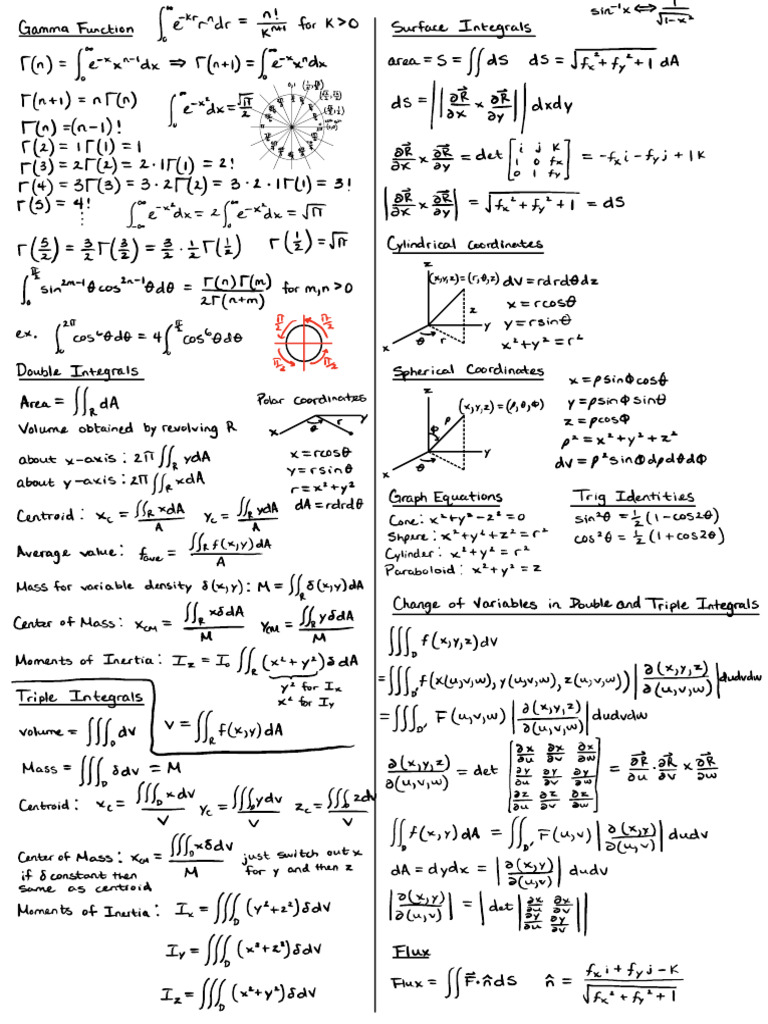 Gamma Function ∫₀^∞ e^{-kr} r^n dr = n!/k^{n+1} for k>0
Γ(n) = ∫₀^∞ e^{-x} x^{n-1} dx ⇒ Γ(n+1) = ∫₀^∞ e^{-x} x^n dx
Γ(n+1) = nΓ(n) ∫₀^∞ e^{-x²} dx = √π/2
Γ(n) = (n-1)!
Γ(2) = 1Γ(1) = 1
Γ(3) = 2Γ(2) = 2·1Γ(1) = 2!
Γ(4) = 3Γ(3) = 3·2Γ(2) = 3·2·1Γ(1) = 3!
Γ(5) = 4!
⋮
∫_{-∞}^∞ e^{-x²} dx = 2∫₀^∞ e^{-x²} dx = √π
Γ(5/2) = 3/2 Γ(3/2) = 3/2 · 1/2 Γ(1/2) Γ(1/2) = √π
∫₀^{π/2} sin^{2m-1}θ cos^{2n-1}θ dθ = Γ(n)Γ(m)/2Γ(n+m) for m,n>0
ex. ∫₀^{2π} cos⁶θ dθ = 4∫₀^{π/2} cos⁶θ dθ
π/2 π/2
π/2 π/2
Double Integrals
Area = ∬_R dA
Polar coordinates
x y θ r
Volume obtained by revolving R
about x-axis: 2π∬_R y dA
about y-axis: 2π∬_R x dA
x = rcosθ
y = rsinθ
r = x²+y²
dA = rdrdθ
Centroid: x_c = ∬_R x dA / A y_c = ∬_R y dA / A
Average value: f_ave = ∬_R f(x,y) dA / A
Mass for variable density δ(x,y): M = ∬_R δ(x,y) dA
Center of Mass: x_CM = ∬_R xδdA / M y_CM = ∬_R yδdA / M
Moments of Inertia: I_z = I_0 ∬_R (x²+y²) δ dA
y² for I_x
x² for I_y
Triple Integrals
V = ∬_R f(x,y) dA
Volume = ∭_D dV
Mass = ∭_D δ dV = M
Centroid: x_c = ∭_D x dV / V y_c = ∭_D y dV / V z_c = ∭_D z dV / V
Center of Mass: x_CM = ∭_D xδdV / M just switch out x
for y and then z
if δ constant then
same as centroid
Moments of Inertia: I_x = ∭_D (y²+z²) δ dV
I_y = ∭_D (x²+z²) δ dV
I_z = ∭_D (x²+y²) δ dV
sin⁻¹x ⇔ 1/√(1-x²)
Surface Integrals
area = S = ∬ dS dS = √(f_x²+f_y²+1) dA
dS = ||∂R⃗/∂x × ∂R⃗/∂y|| dxdy
∂R⃗/∂x × ∂R⃗/∂y = det [i j k; 1 0 f_x; 0 1 f_y] = -f_x i - f_y j + 1k
|∂R⃗/∂x × ∂R⃗/∂y| = √(f_x²+f_y²+1) = dS
Cylindrical Coordinates
z (x,y,z) = (r,θ,z) z y x θ r
dV = rdrdθdz
x = rcosθ
y = rsinθ
x²+y² = r²
Spherical Coordinates
z (x,y,z) = (ρ,θ,Φ) Φ ρ y x θ
x = ρsinΦcosθ
y = ρsinΦsinθ
z = ρcosΦ
ρ² = x²+y²+z²
dV = ρ²sinΦdρdθdΦ
Graph Equations
Cone: x²+y²-z²=0
Shpere: x²+y²+z²=r²
Cylinder: x²+y²=r²
Paraboloid: x²+y²=z
Trig Identities
sin²θ = 1/2(1-cos2θ)
cos²θ = 1/2(1+cos2θ)
Change of Variables in Double and Triple Integrals
∭_D f(x,y,z) dV
= ∭_D' f(x(u,v,w), y(u,v,w), z(u,v,w)) |∂(x,y,z)/∂(u,v,w)| dudvdw
= ∭_D' F(u,v,w) |∂(x,y,z)/∂(u,v,w)| dudvdw
∂(x,y,z)/∂(u,v,w) = det [∂x/∂u ∂x/∂v ∂x/∂w; ∂y/∂u ∂y/∂v ∂y/∂w; ∂z/∂u ∂z/∂v ∂z/∂w] = ∂R⃗/∂u · ∂R⃗/∂v × ∂R⃗/∂w
∬_D f(x,y) dA = ∬_D' F(u,v) |∂(x,y)/∂(u,v)| dudv
dA = dydx = |∂(x,y)/∂(u,v)| dudv
|∂(x,y)/∂(u,v)| = |det |∂x/∂u ∂x/∂v; ∂y/∂u ∂y/∂v||
Flux
Flux = ∬ F⃗·n̂ dS n̂ = (f_x i + f_y j - k)/√(f_x²+f_y²+1)